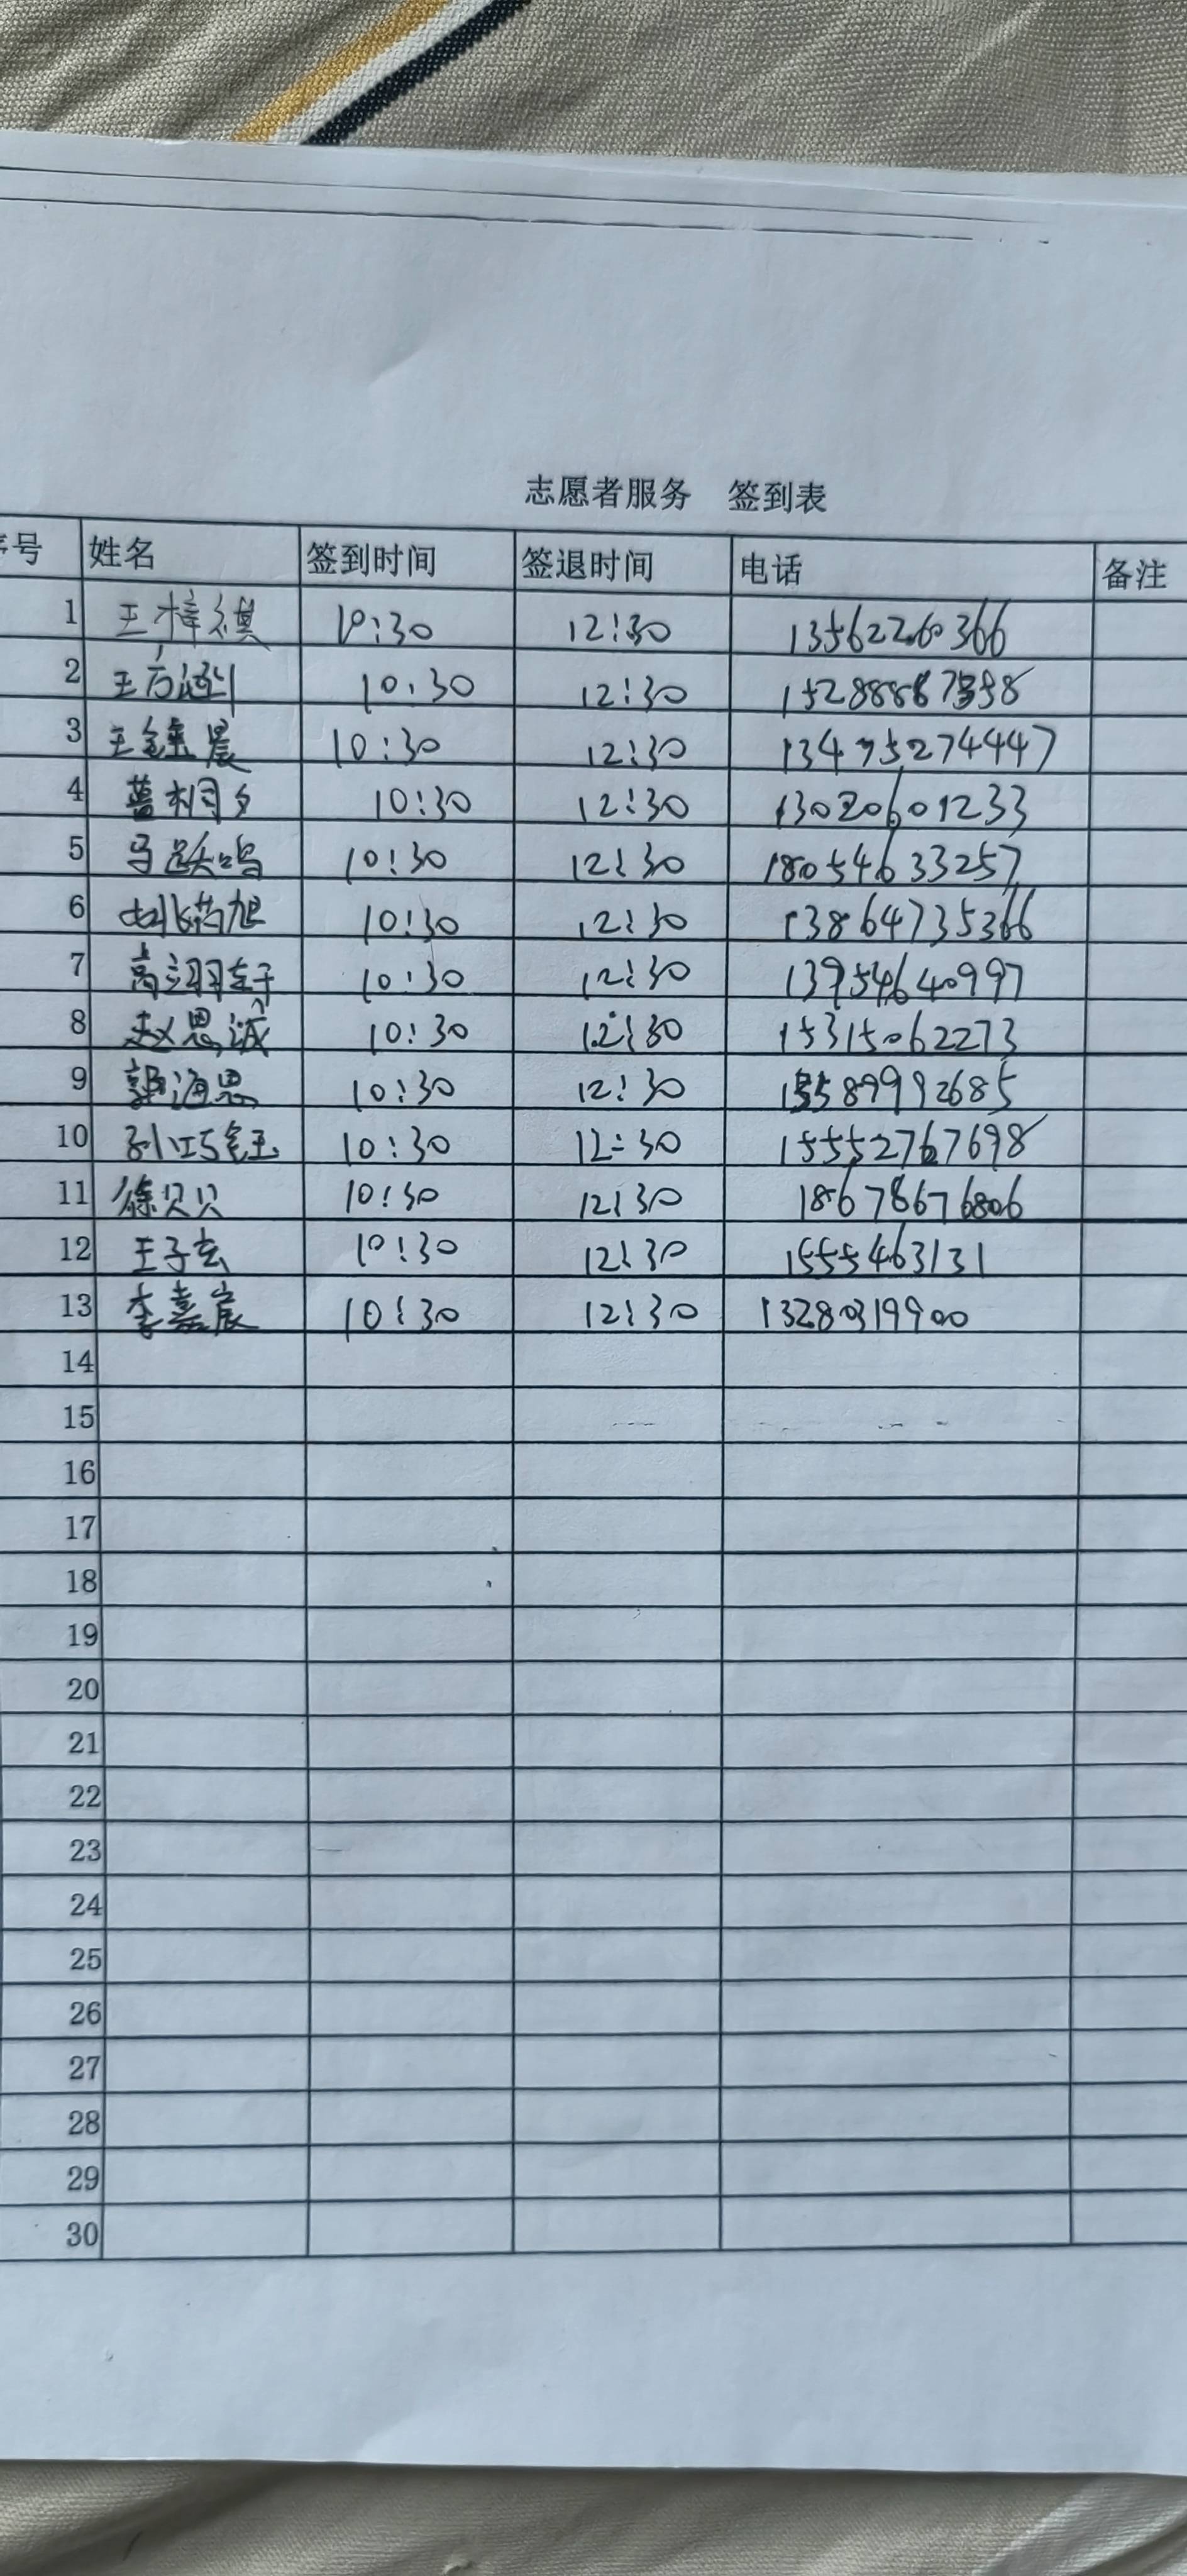 志愿者服务 签到表
序号 姓名 签到时间 签退时间 电话 备注
1 王梓祺 10:30 12:30 13562260366
2 王 10:30 12:30
3 王 晨 10:30 12:30 13475274447
4 桐 10:30 12:30 13020601233
5 马跃鸣 10:30 12:30 18054633257
6 旭 10:30 12:30 13864735366
7 高翊 10:30 12:30 13954640997
8 赵恩诚 10:30 12:30 15315062273
9 郭海恩 10:30 12:30 15589992685
10 孙巧钰 10:30 12:30 15552767698
11 徐贝贝 10:30 12:30 18678676806
12 王子玄 10:30 12:30 1555463131
13 李嘉宸 10:30 12:30 13280319900
14
15
16
17
18
19
20
21
22
23
24
25
26
27
28
29
30